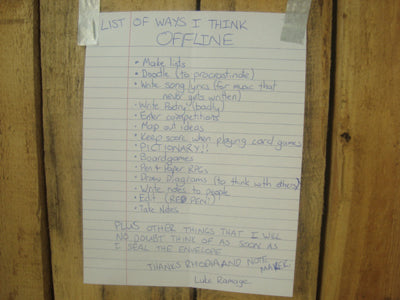 LIST OF WAYS I THINK
OFFLINE
• Make lists
• Doodle (to procrastinate)
• Write song lyrics (for music that
never gets written)
• Write Poetry (badly)
• Enter competitions
• Map out ideas
• Keep score when playing card games
• PICTIONARY!!
• Boardgames
• Pen & Paper RPGs
• Draw Diagrams (to think with others)
• Write notes to people
• Edit (RED PEN!)
• Take Notes
PLUS OTHER THINGS THAT I WILL
NO DOUBT THINK OF AS SOON AS
I SEAL THE ENVELOPE
THANKS RHODIA AND NOTE
MAKER
Luke Ramage